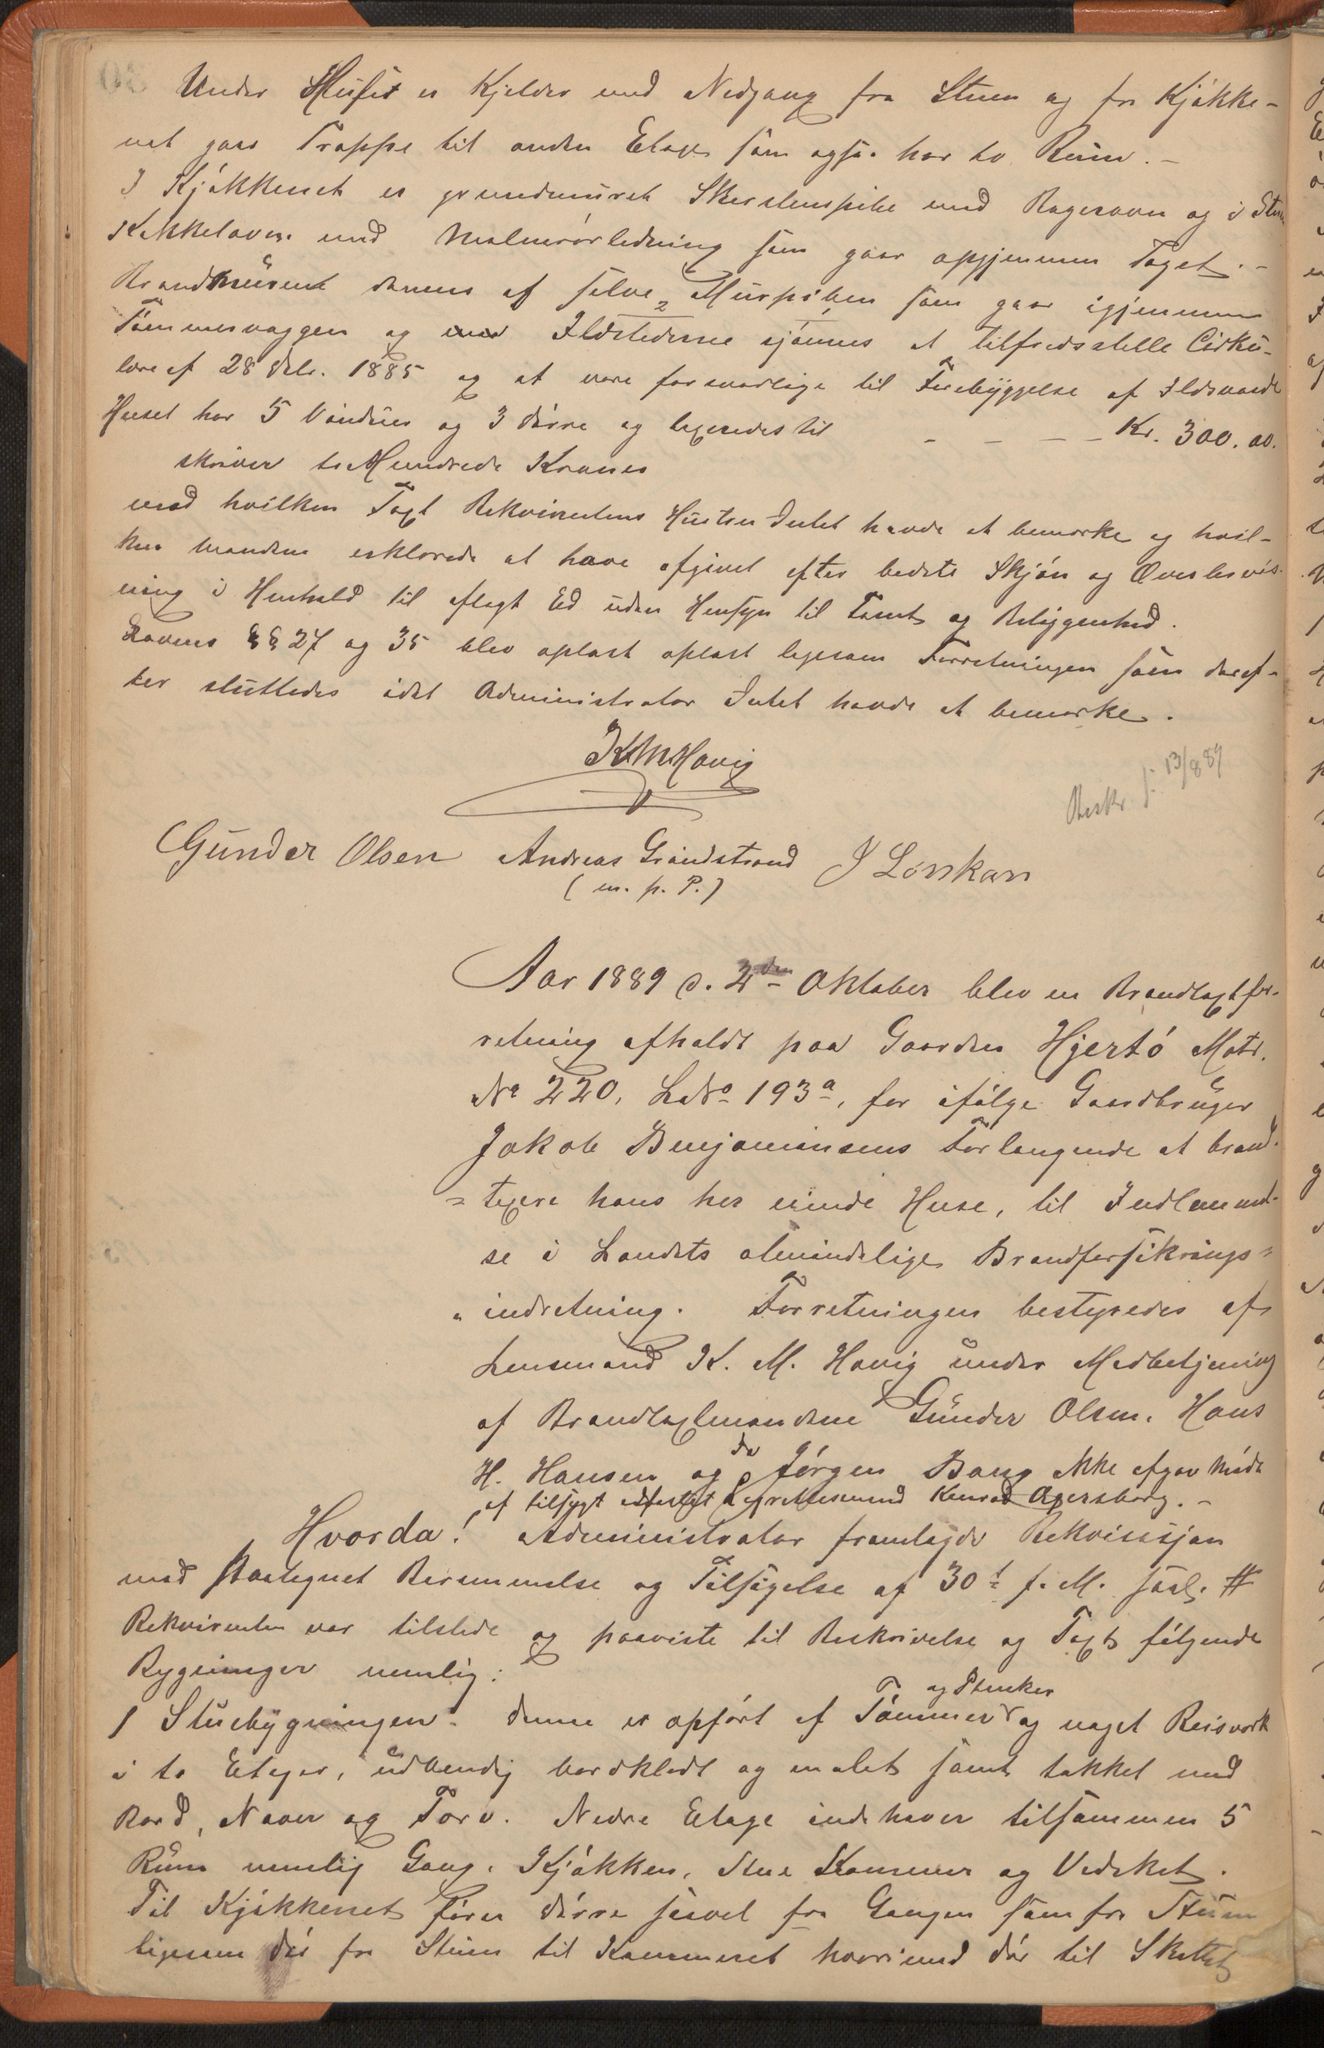 Under Huset er Kjelder med Nedgang fra Stuen og fra Kjøkke-
net gaar Trappe til anden Etage som ogsaa har to Rum. -
I Kjøkkenet er grundmuret Skorstenspibe med Bagerovn og i Stuen
Kakkelovn med Malmrørledning som gaar opgjennem Taget. -
Brandmurene dannes af selve Murpiben som gaar igjennem
Tømmervæggen og Ildstederne sjønnes at tilfredsstille Cirku-
lære af 28 Debr. 1885 og at være forsvarlige til Forebyggelse af Ildsvaade
Huset har 5 Vinduer og 3 Dørre og taxeredes til - - - - Kr. 300.00.
skriver tre Hundrede Kroner
mod hvilken Taxt Rekvirentens Hustru Intet havde at bemærke og hvil-
ken Mændene erklærede at have afgivet efter bedste Skjøn og Overbevis-
ning i Henhold til aflagt Ed uden Hensyn til Tomt og Beliggenhed.
Lovens §§ 27 og 35 blev oplæst oplæst ligesom Forretningen som deref-
ter sluttedes idet Administrator Intet havde at bemærke.
K M Havig
Beskr. f. 13/8 89
Gunder Olsen Andreas Grandstrand J Lønkan
(m. p. P.)
Aar 1889 d. 2den Oktober blev en Brandtaxtfor-
retning afholdt paa Gaarden Hjertø Matr.
No 220, LNo 193a, for ifølge Gaardbruger
Jakob Benjaminsens Forlangende at brand-
= taxere hans her eiende Huse, til Indlemmel-
se i Landets almindelige Brandforsikrings=
" indretning. Forretningen bestyredes af
Lensmand K. M. Havig under Medbetjening
af Brandtaxtmændene Gunder Olsen, Hans
H. Hansen og da Jørgen Bang ikke afgav Møde
af tilsagt edfæstet Lagrettesmand Konrad Agersborg. -
Hvorda! Administrator fremlagde Rekvisisjon
med paategnet Berammelse og Tilsigelse af 30t f. M. saal. #
Rekvirenten var tilstede og paaviste til Beskrivelse og Taxt følgende
Bygninger nemlig:
1 Stuebygningen. denne er opført af Tømmer og Planker og noget Reisværk
i to Etager, udvendig bordklædt og malet samt tækket med
Bord, Næver og Torv. Nedre Etage indehaver tilsammen 5
Rum nemlig Gang, Kjøkken, Stue Kammer og Vedskot.
Til Kjøkkenet fører Dørre saavel fra Gangen som fra Stuen
ligesom Dør fra Stuen til Kammeret hvorimod Dør til Skottet